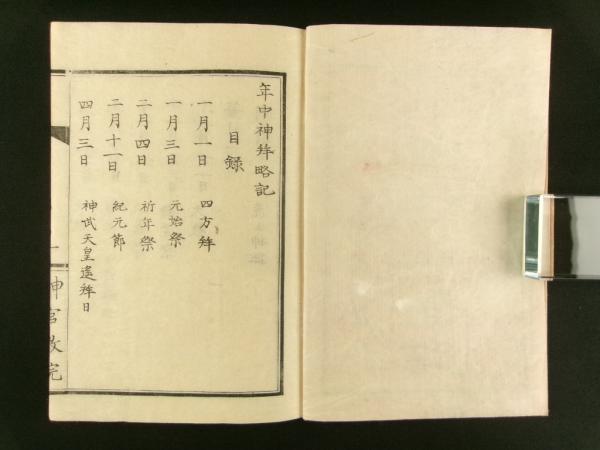 年中神拜略記
目録
一月一日 四方拜
一月三日 元始祭
二月四日 祈年祭
二月十一日 紀元節
四月三日 神武天皇遙拜日
神宮教院